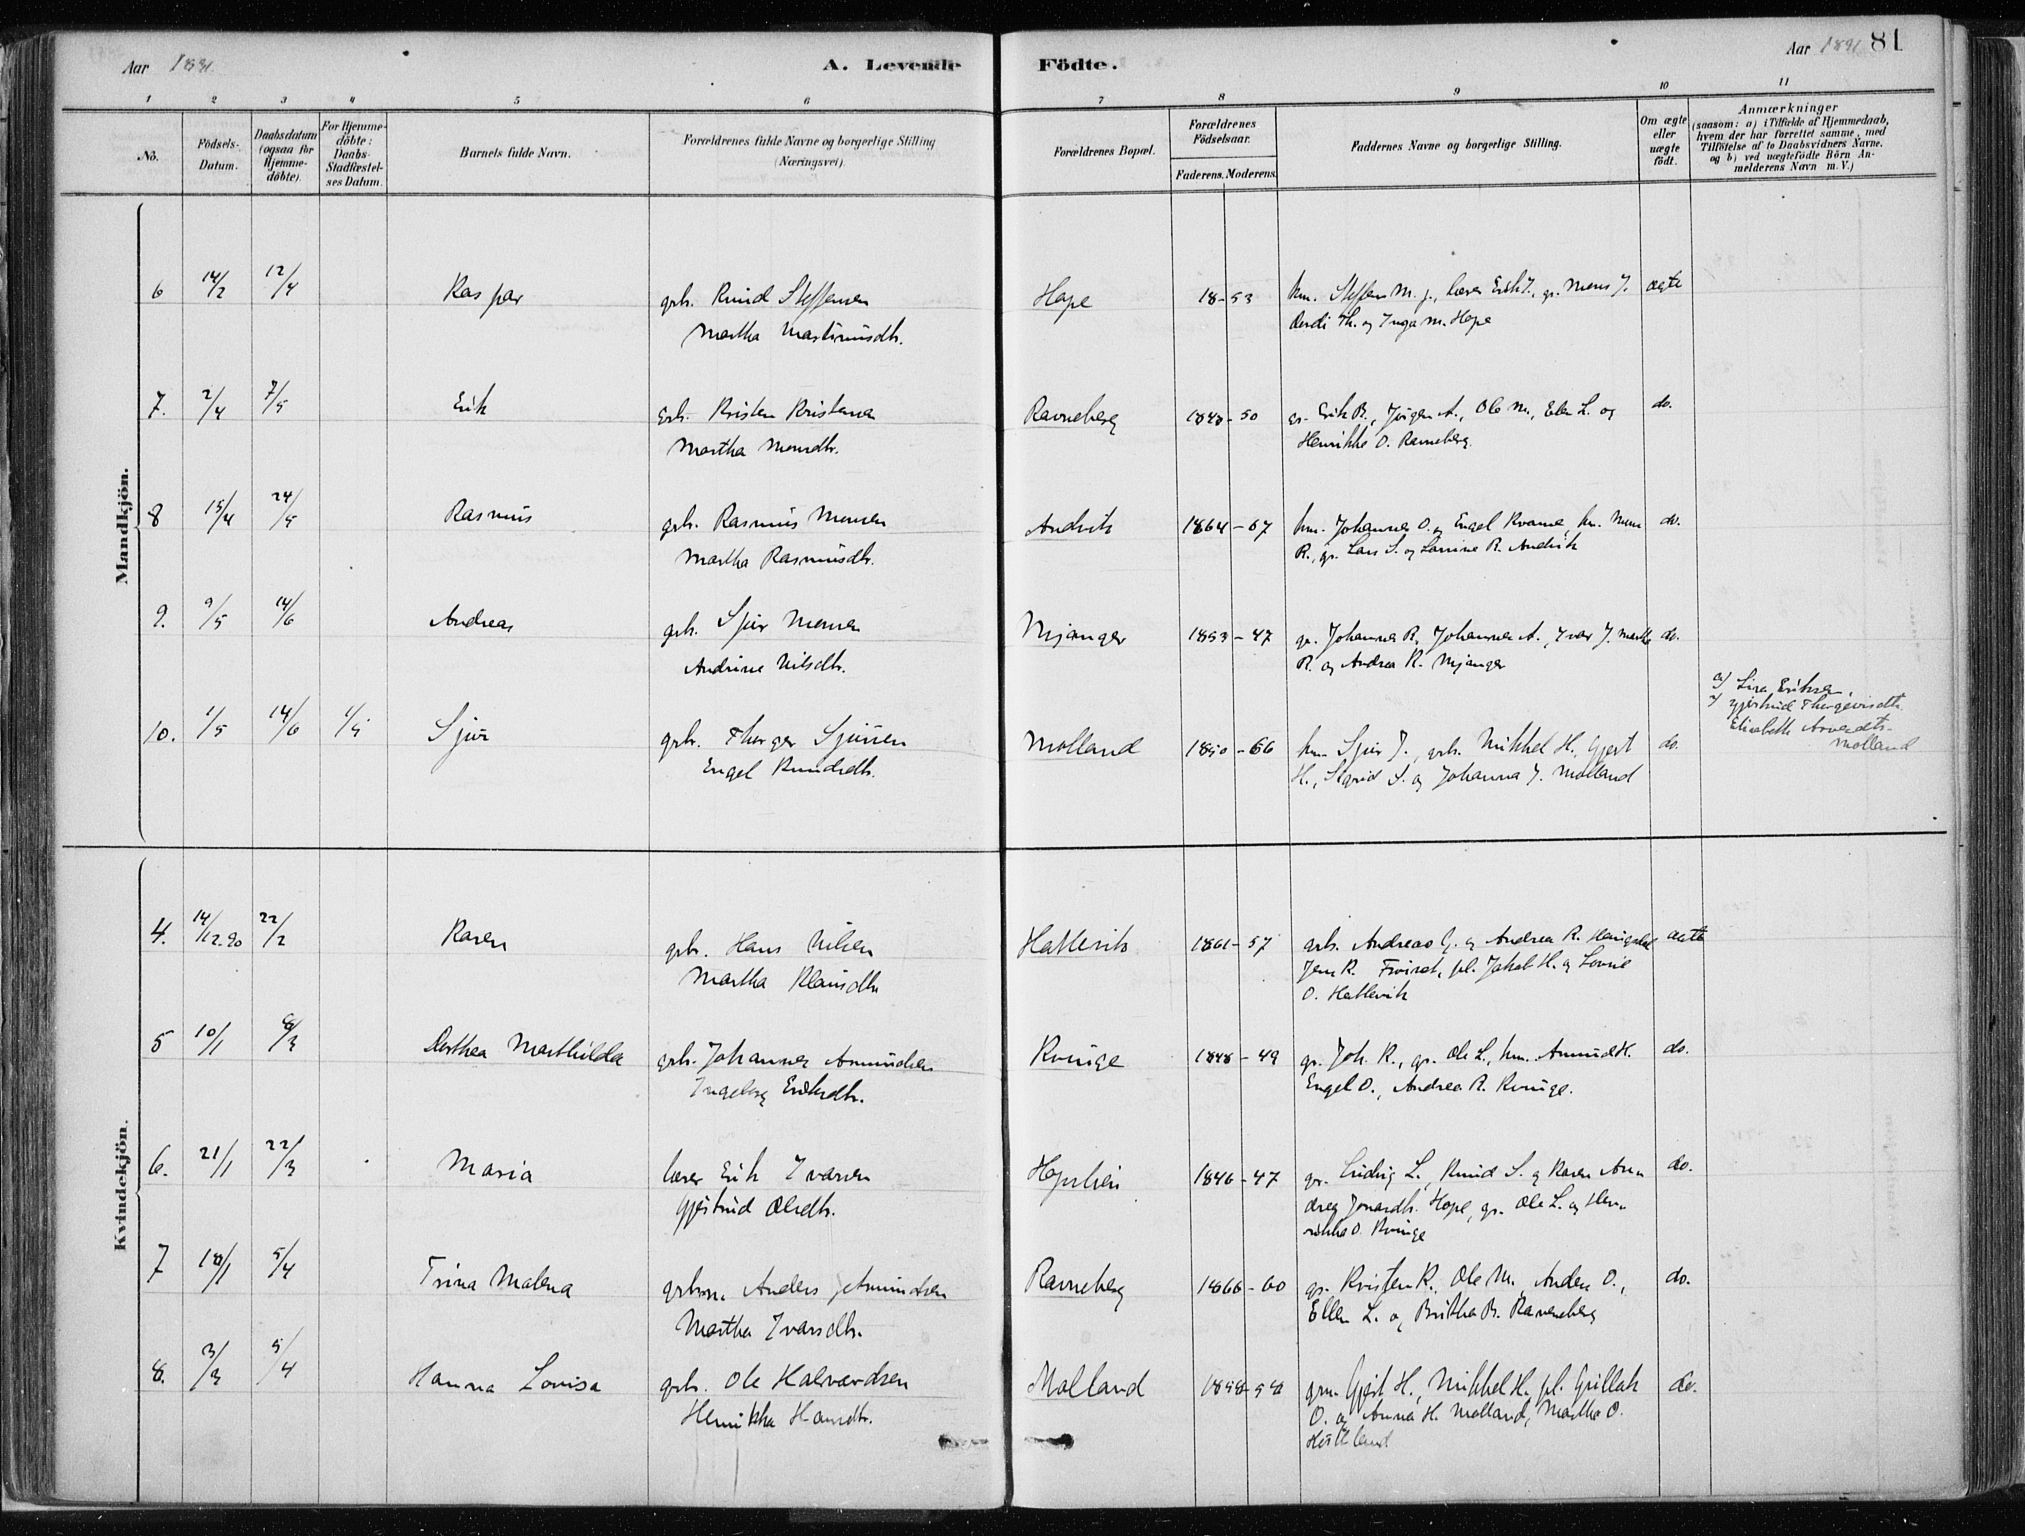 Aar 1891.
A. Levende Födte.
Aar 1891
81
1 2 3 4 5 6 7 8 9 10 11
No.
Födsels-Datum.
Daabsdatum (ogsaa for Hjemme-döbte).
For Hjemme-döbte: Daabs-Stadfæstel-ses Datum.
Barnets fulde Navn.
Forældrenes fulde Navne og borgerlige Stilling (Næringsvei).
Forældrenes Bopæl.
Forældrenes Födselsaar.
Faderens. Moderens.
Faddernes Navne og borgerlige Stilling.
Om ægte eller uægte födt.
Anmærkninger
(saasom: a) i Tilfælde af Hjemmedaab,
hvem der har forrettet samme, med
Tilföielse af to Daabsvidners Navne.
og b) ved uægtefödte Börn An-
melderens Navn m. V.)
Mandkjön.
6 14/2 12/4 Kaspar grb. Knud Steffensen Hope 18-53 km. Steffen M. g., lærer Erik I., gr. Mons J. ægte
Martha Martinusdtr. Th. og Inga M. Hope
7. 2/4 7/5 Erik grb. Kristen Kristensen Ravneberg 1848-50 gr. Erik R., Jørgen A., Ole M., Ellen L. og do.
Martha Monsdtr. Henrikke O. Ravneberg.
8 15/4 24/5 Rasmus grb. Rasmus Monsen Andvik 1864-67 km. Johannes O. og Engel Kvamme, km. Mons do.
Martha Rasmusdtr. R., gr. Lars S. og Lovise R. Andvik
9. 9/5 14/6 Andreas grb. Sjur Monsen Mjanger 1853-47 gr. Johannes R., Johannes A., Ivar J. Martha do.
Andrine Nilsdtr. R. og Andrea R. Mjanger
10. 1/5 14/6 1/5 Sjur grb. Thorger Sjursen Molland 1850-66 km. Sjur T., grb. Mikkel H., Gjert do.
Engel Knudsdtr. H., Sigrid S. og Johanna J. Molland
a) Lisa Eriksen,
Gjertrud Thorgeirsdtr.
Elisabeth
Molland
Kvindekjön.
4. 14/12.90 22/2 Karen grb. Hans Nilsen Hatlevik 1861-57 grb. Andreas G. og Andrea R. ægte
Martha Klausdtr. Jens R. pl. Jakob H. og Lovise
O. Hatlevik
5 10/1 8/3 Dorthea Mathilda grb. Johannes Amundsen Kvinge 1848-49 gr. Joh. R., gr. Ole L., km. Amund H. do.
Ingeborg Eriksdtr. Engel O., Andrea R. Kvinge.
6. 21/1 22/3 Maria lærer Erik Ivarsen Hopslien 1846-47 gr. Ludvig L., Knud S. og Karen An- do.
Gjertrud Olsdtr. drea Jonasdtr. Hope, gr. Ole L. og Hen-
rikke O. Kvinge
7 18/1 5/4 Trina Malena grbm. Anders Amundsen Ravneberg 1866-60 gr. Kristen K., Ole M., Anders O., do.
Martha Ivarsdtr. Ellen L. og Brithe B. Ravneberg
8. 3/3 5/4 Hanna Lovisa grb. Ole Halvardsen Molland 1858-58 gr. Gjert H., Mikkel H., pl. O. do.
Henrikka Hansdtr. O. og Anna H. Molland, Martha O.